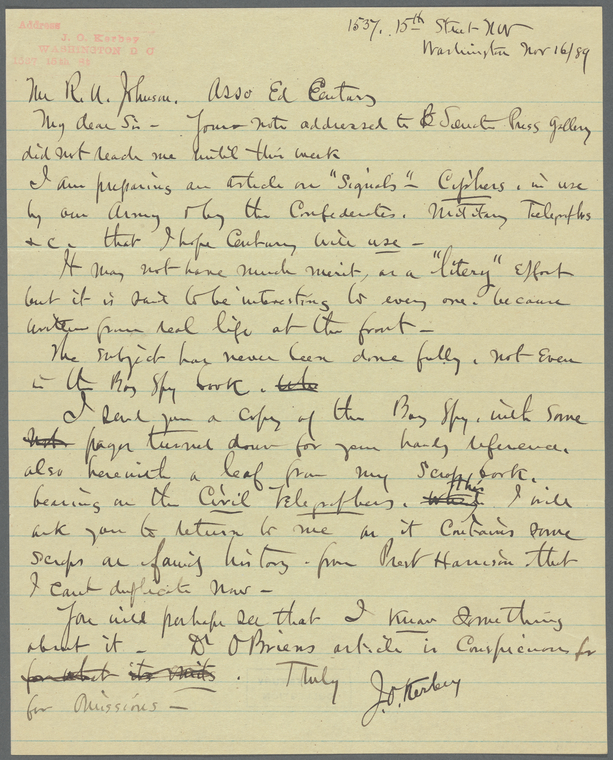 Address
J. O. Kerbey
WASHINGTON D C
1537 15th St
1537. 15th Street NW
Washington Nov 16/89
Mr R. U. Johnson. Asso Ed Century
My dear Sir - Your note addressed to Senate Press Gallery
did not reach me until this week
I am preparing an article on "Signals" - Ciphers. in use
by our Army & by the Confederates. Military Telegraphs
&c. that I hope Century will use -
It may not have much merit, as a "litery" Effort
but it is said to be interesting to every one. because
written from real life at the front -
The subject has never been done fully, not Even
in the Boy Spy book.
I send you a copy of the Boy Spy. with some
pages turned down for your handy reference.
also herewith a leaf from my Scrap book.
bearing on the Civil Telegraphers. this I will
ask you to return to me as it Contains some
scraps on family history - from Prest Harrison that
I cant duplicate now -
You will perhaps see that I know something
about it - Dr O'Briens article is Conspicuous for
for what its
. Truly J. O. Kerbey
for Omissions -